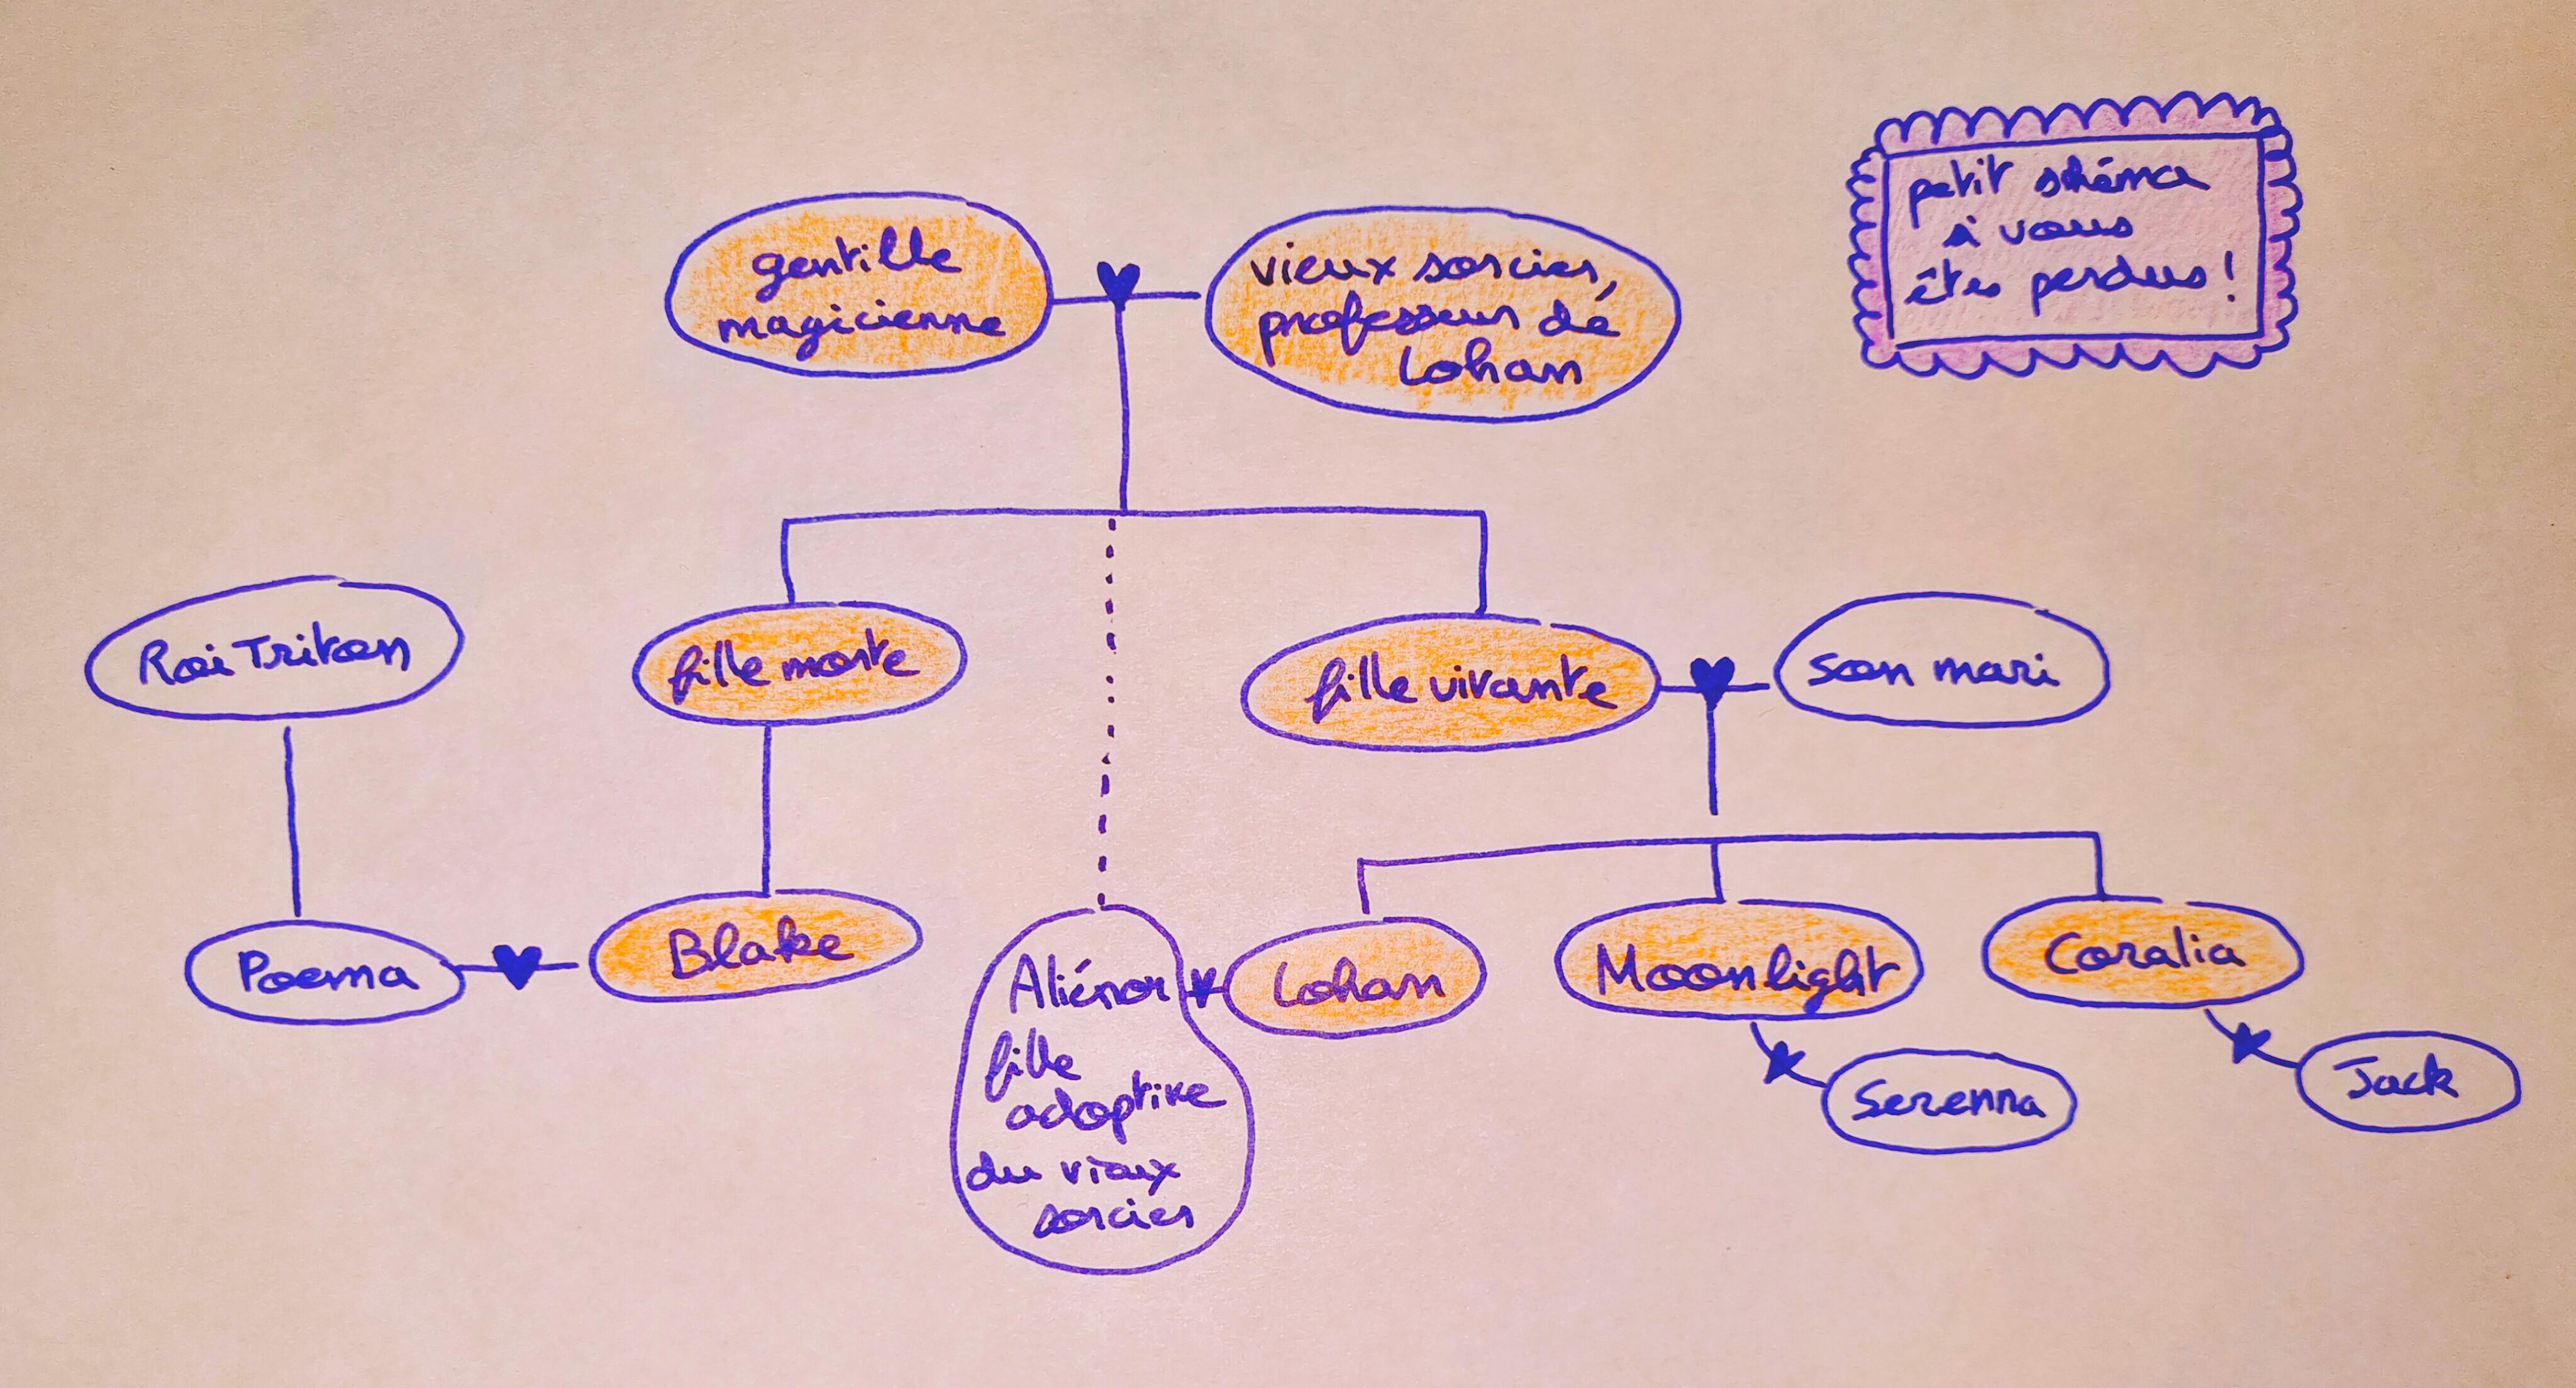 petit schéma
si vous
êtes perdus !
gentille
magicienne
vieux sorcier,
professeur de
Lohan
Roi Triton
fille morte
fille vivante
son mari
Poema
Blake
Aliénor
fille
adoptive
du vieux
sorcier
Lohan
Moonlight
Coralia
Serenna
Jack